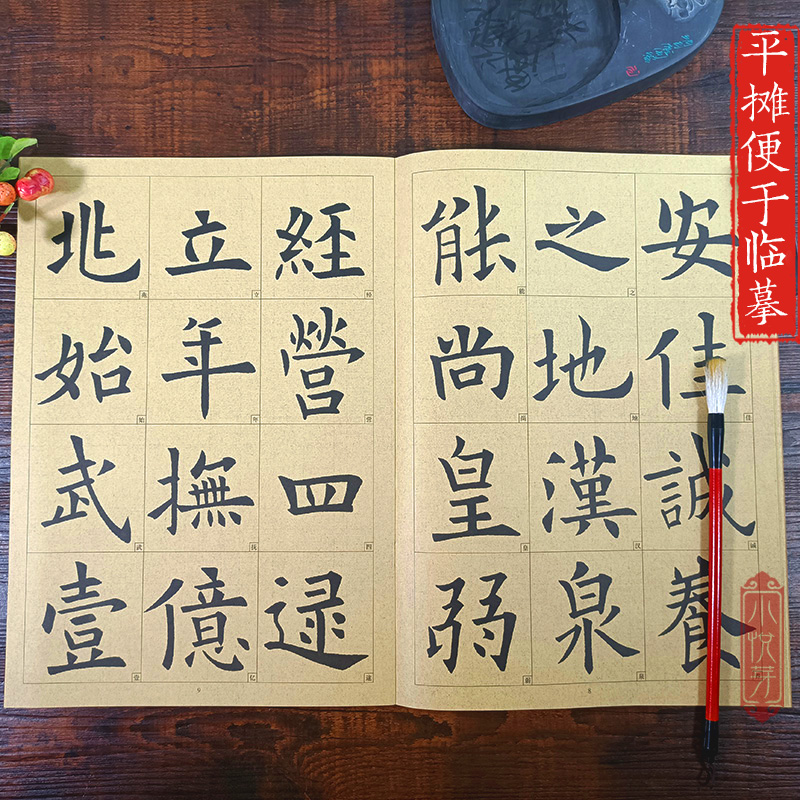 平摊便于临摹
安佳誠養
之地漢泉
能尚皇弱
經營四逯
立年撫億
兆始武壹
8
9
小悦芽